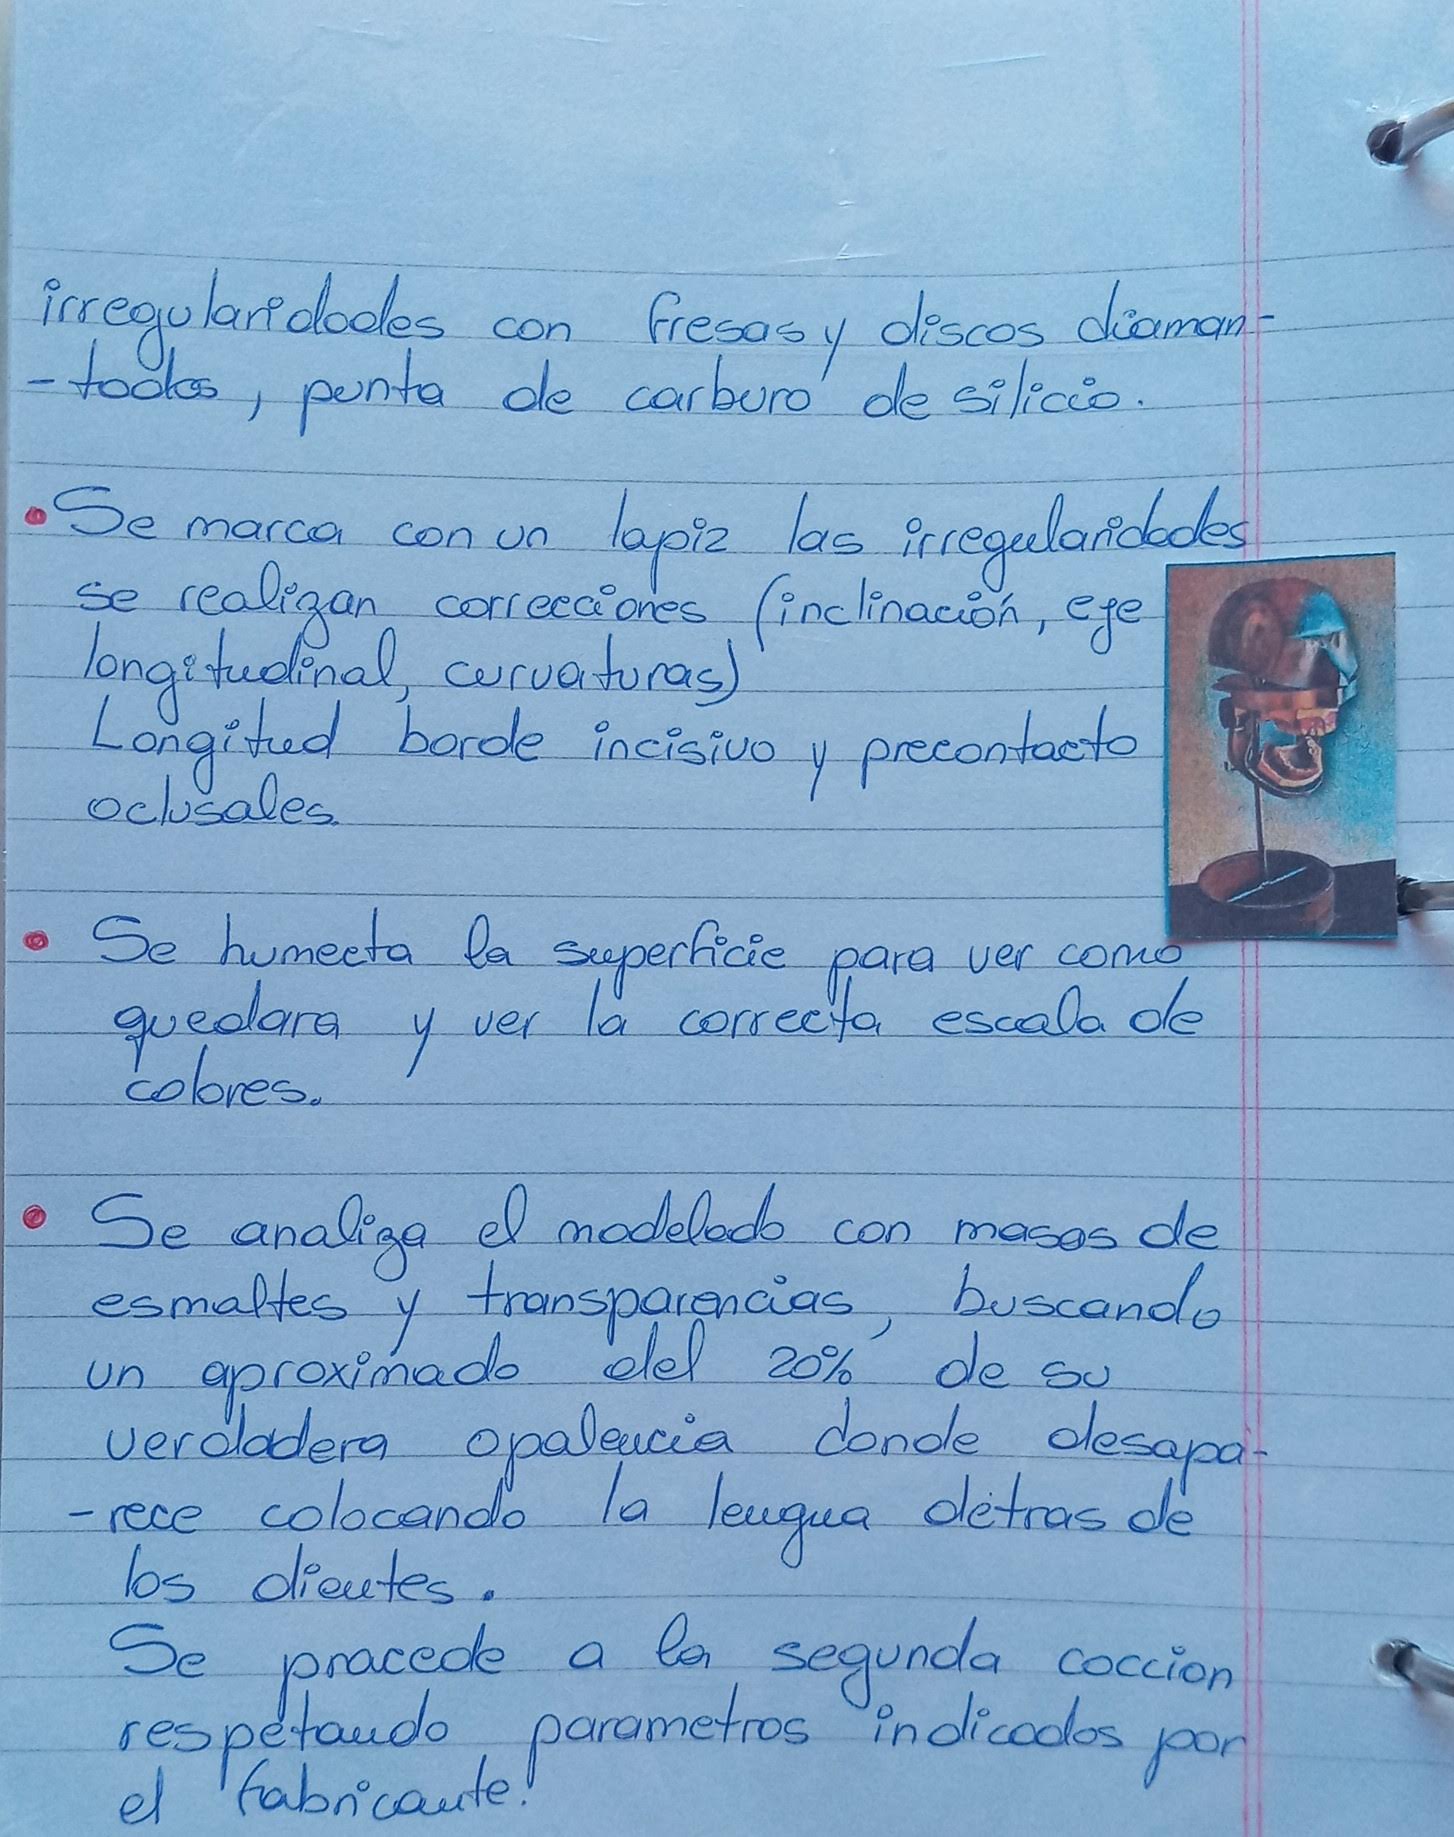 irregularidades con fresas y discos diaman-
-tados, punta de carburo de silicio.
• Se marca con un lapiz las irregularidades
se realizan correcciones (inclinación, eje
longitudinal, curvaturas)
Longitud borde incisivo y precontacto
oclusales.
• Se humecta la superficie para ver como
quedara y ver la correcta escala de
colores.
• Se analiza el modelado con masas de
esmaltes y transparencias, buscando
un aproximado del 20% de su
verdadera opalencia donde desapa-
-rece colocando la lengua detras de
los dientes.
Se procede a la segunda coccion
respetando parametros indicados por
el fabricante.